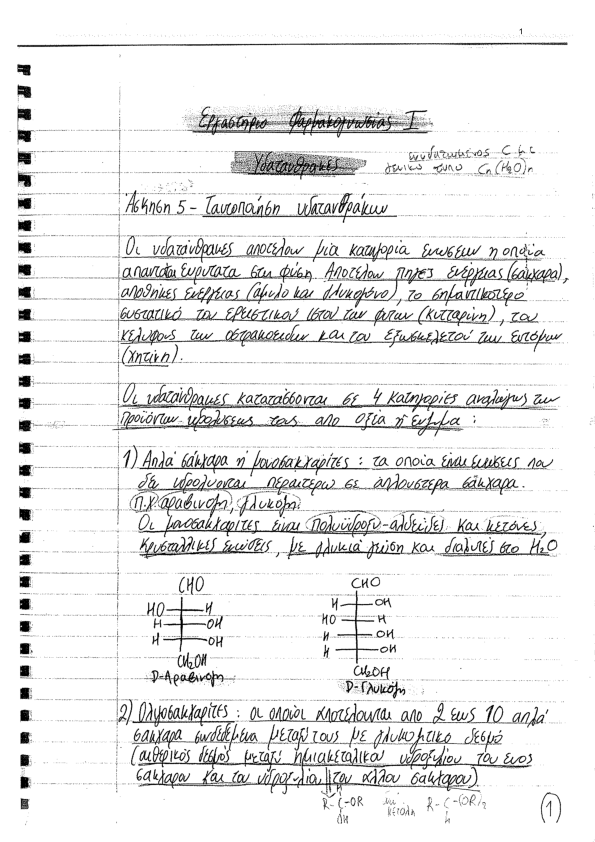 1
Εργαστήριο Φαρμακογνωσίας I
Υδατάνθρακες
γενικό τύπο Cn(H₂O)n
Άσκηση 5 - Ταυτοποίηση υδατανθράκων
Οι υδατάνθρακες αποτελούν μία κατηγορία ενώσεων η οποία
απαντάται ευρύτατα στη φύση. Αποτελούν πηγές ενέργειας (σάκχαρα),
αποθήκες ενέργειας (άμυλο και γλυκογόνο), το σημαντικότερο
συστατικό του ερειστικού ιστού των φυτών (κυτταρίνη), του
κελύφους των οστρακοειδών και του εξωσκελετού των εντόμων
(χητίνη).
Οι υδατάνθρακες κατατάσσονται σε 4 κατηγορίες αναλόγως των
προϊόντων υδρολύσεως τους απο οξέα ή ένζυμα :
1) Απλά σάκχαρα ή μονοσακχαρίτες : τα οποία είναι ενώσεις που
δεν υδρολύονται περαιτέρω σε απλούστερα σάκχαρα.
π.χ. αραβινόζη, γλυκόζη.
Οι μονοσακχαρίτες είναι πολυϋδροξυ-αλδεΐδες και κετόνες,
κρυσταλλικές ενώσεις, με γλυκιά γεύση και διαλυτές στο H₂O
CHO CHO
HO H H OH
H OH HO H
H OH H OH
H OH
CH₂OH CH₂OH
D-Αραβινόζη D-Γλυκόζη
2) Ολιγοσακχαρίτες : οι οποίοι αποτελούνται απο 2 εως 10 απλά
σάκχαρα συνδεδεμένα μεταξύ τους με γλυκοζιτικό δεσμό
(αιθερικός δεσμός μεταξύ ημιακεταλικού υδροξυλίου του ενος
σακχάρου και του υδροξυλίου του άλλου σακχάρου).
H
R-C-OR R-C-(OR)₂
OH H
1